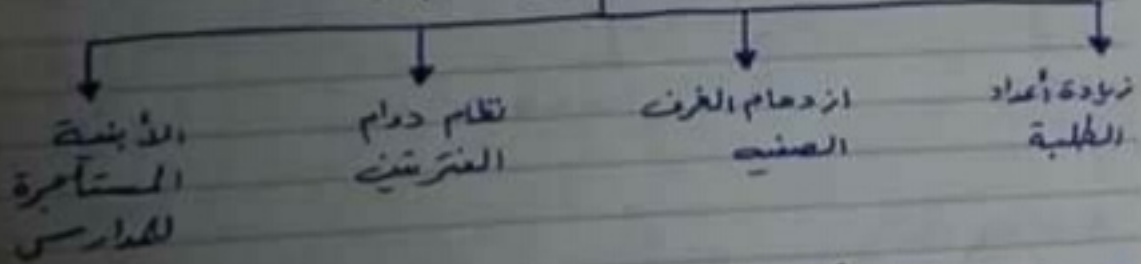 زيادة أعداد
الطلبة
ازدحام الغرف
الصفيه
نظام دوام
الفترتين
الأبنية
المستأجرة
للمدارس